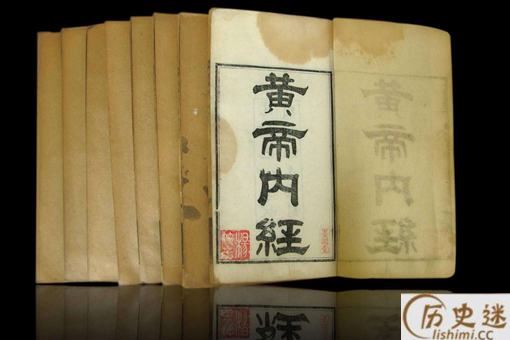 黄帝内經
历史迷
lishimi.cc